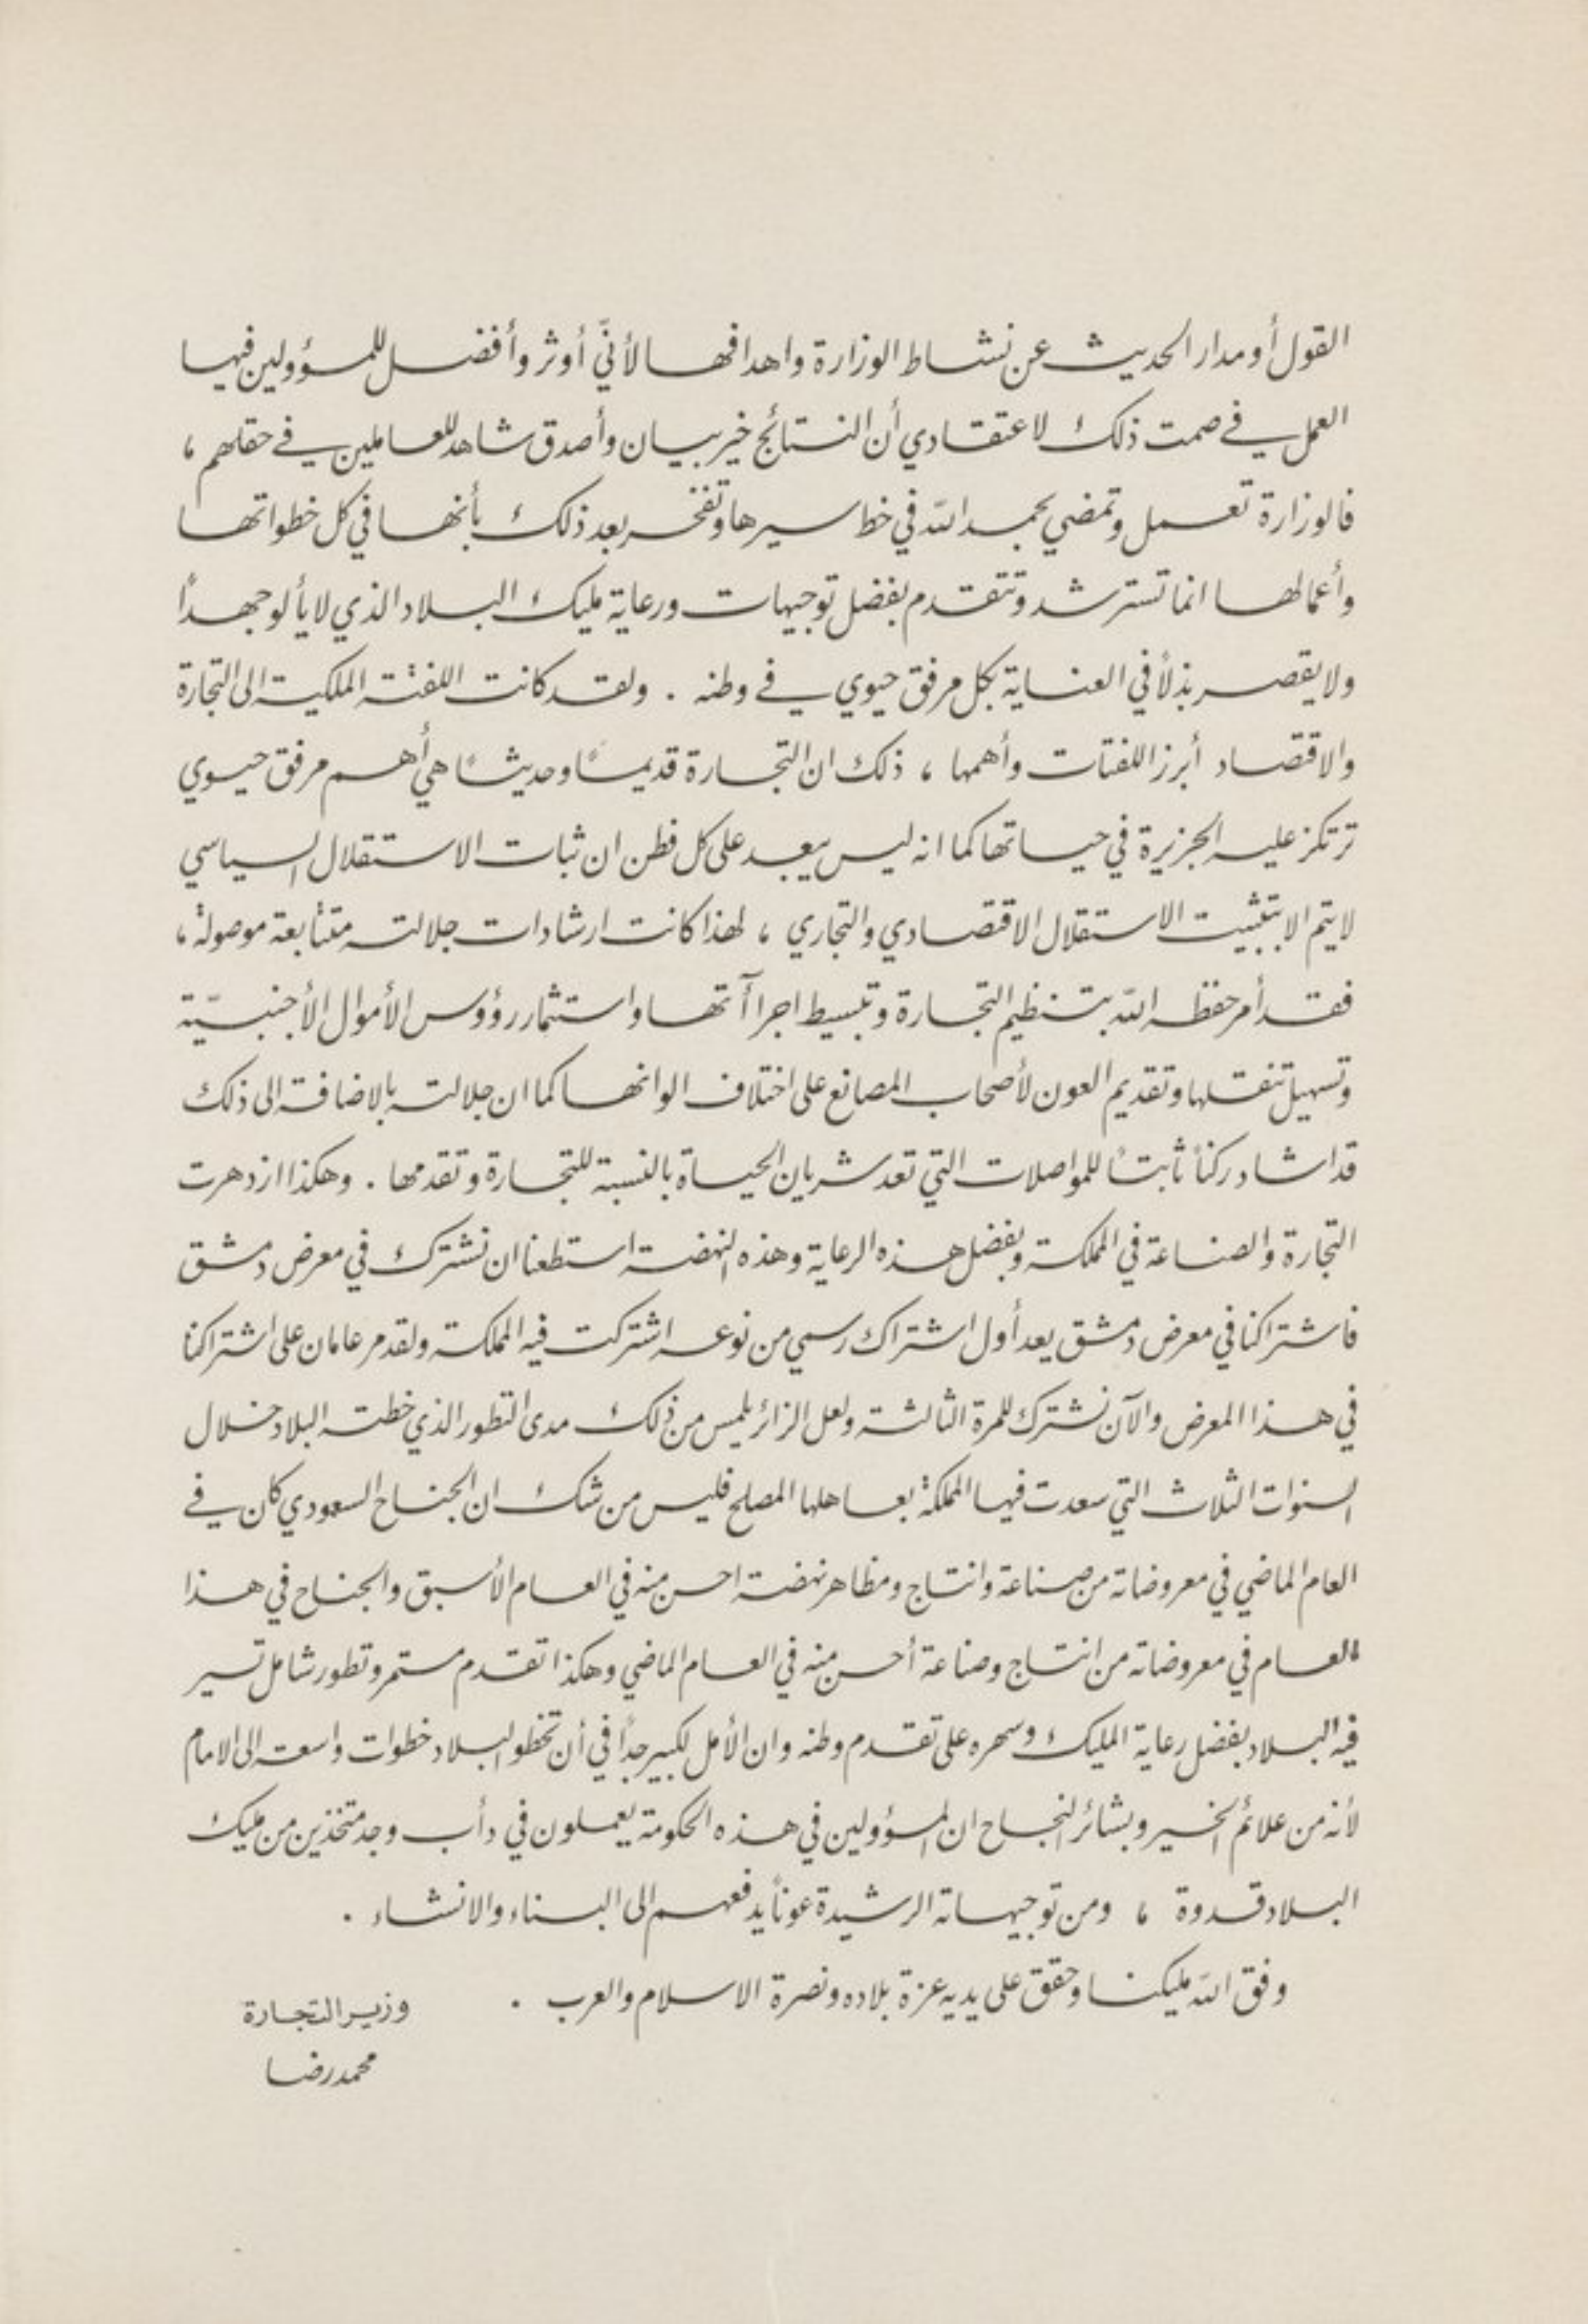 القول أو مدار الحديث عن نشاط الوزارة واهدافها لأنّي أوثر وأفضل للمسؤولين فيها
العمل في صمت ذلك لاعتقادي أن النتائج خير بيان وأصدق شاهد للعاملين في حقلهم ،
فالوزارة تعمل وتمضي بحمد الله في خط سيرها وتفخر بعد ذلك بأنها في كل خطواتها
وأعمالها انما تسترشد وتتقدم بفضل توجيهات ورعاية مليك البلاد الذي لا يألو جهداً
ولا يقصر بذلاً في العناية بكل مرفق حيوي في وطنه . ولقد كانت اللفتة الملكية الى التجارة
والاقتصاد أبرز اللفتات وأهمها ، ذلك ان التجارة قديماً وحديثاً هي أهم مرفق حيوي
ترتكز عليه الجزيرة في حياتها كما انه ليس ببعيد على كل فطن ان ثبات الاستقلال السياسي
لا يتم الا بتثبيت الاستقلال الاقتصادي والتجاري ، لهذا كانت ارشادات جلالته متتابعة موصولة ،
فقد أمر حفظه الله بتنظيم التجارة وتبسيط اجراآتها واستثمار رؤوس الأموال الأجنبيّة
وتسهيل تنقلها وتقديم العون لأصحاب المصانع على اختلاف الوانها كما ان جلالته بالاضافة الى ذلك
قد اشاد ركناً ثابتاً للمواصلات التي تعد شريان الحياة بالنسبة للتجارة وتقدمها . وهكذا ازدهرت
التجارة والصناعة في المملكة وبفضل هذه الرعاية وهذه النهضة استطعنا ان نشترك في معرض دمشق
فاشتراكنا في معرض دمشق يعد أول اشتراك رسمي من نوعه اشتركت فيه المملكة ولقد مر عامان على اشتراكنا
في هذا المعرض والآن نشترك للمرة الثالثة ولعل الزائر يلمس من ذلك مدى التطور الذي خطته البلاد خلال
السنوات الثلاث التي سعدت فيها المملكة بعاهلها المصلح فليس من شك ان الجناح السعودي كان في
العام الماضي في معروضاته من صناعة وانتاج ومظاهر نهضة احسن منه في العام الأسبق والجناح في هذا
العام في معروضاته من انتاج وصناعة أحسن منه في العام الماضي وهكذا تقدم مستمر وتطور شامل تسير
فيه البلاد بفضل رعاية المليك وسهره على تقدم وطنه وان الأمل لكبير جداً في أن تخطو البلاد خطوات واسعة الى الامام
لأنه من علائم الخير وبشائر النجاح ان المسؤولين في هذه الحكومة يعملون في دأب وجد متخذين من مليك
البلاد قدوة ، ومن توجيهاته الرشيدة عوناً يدفعهم الى البناء والانشاء .
وفق الله مليكنا وحقق على يديه عزة بلاده ونصرة الاسلام والعرب .
وزير التجارة
محمد رضا